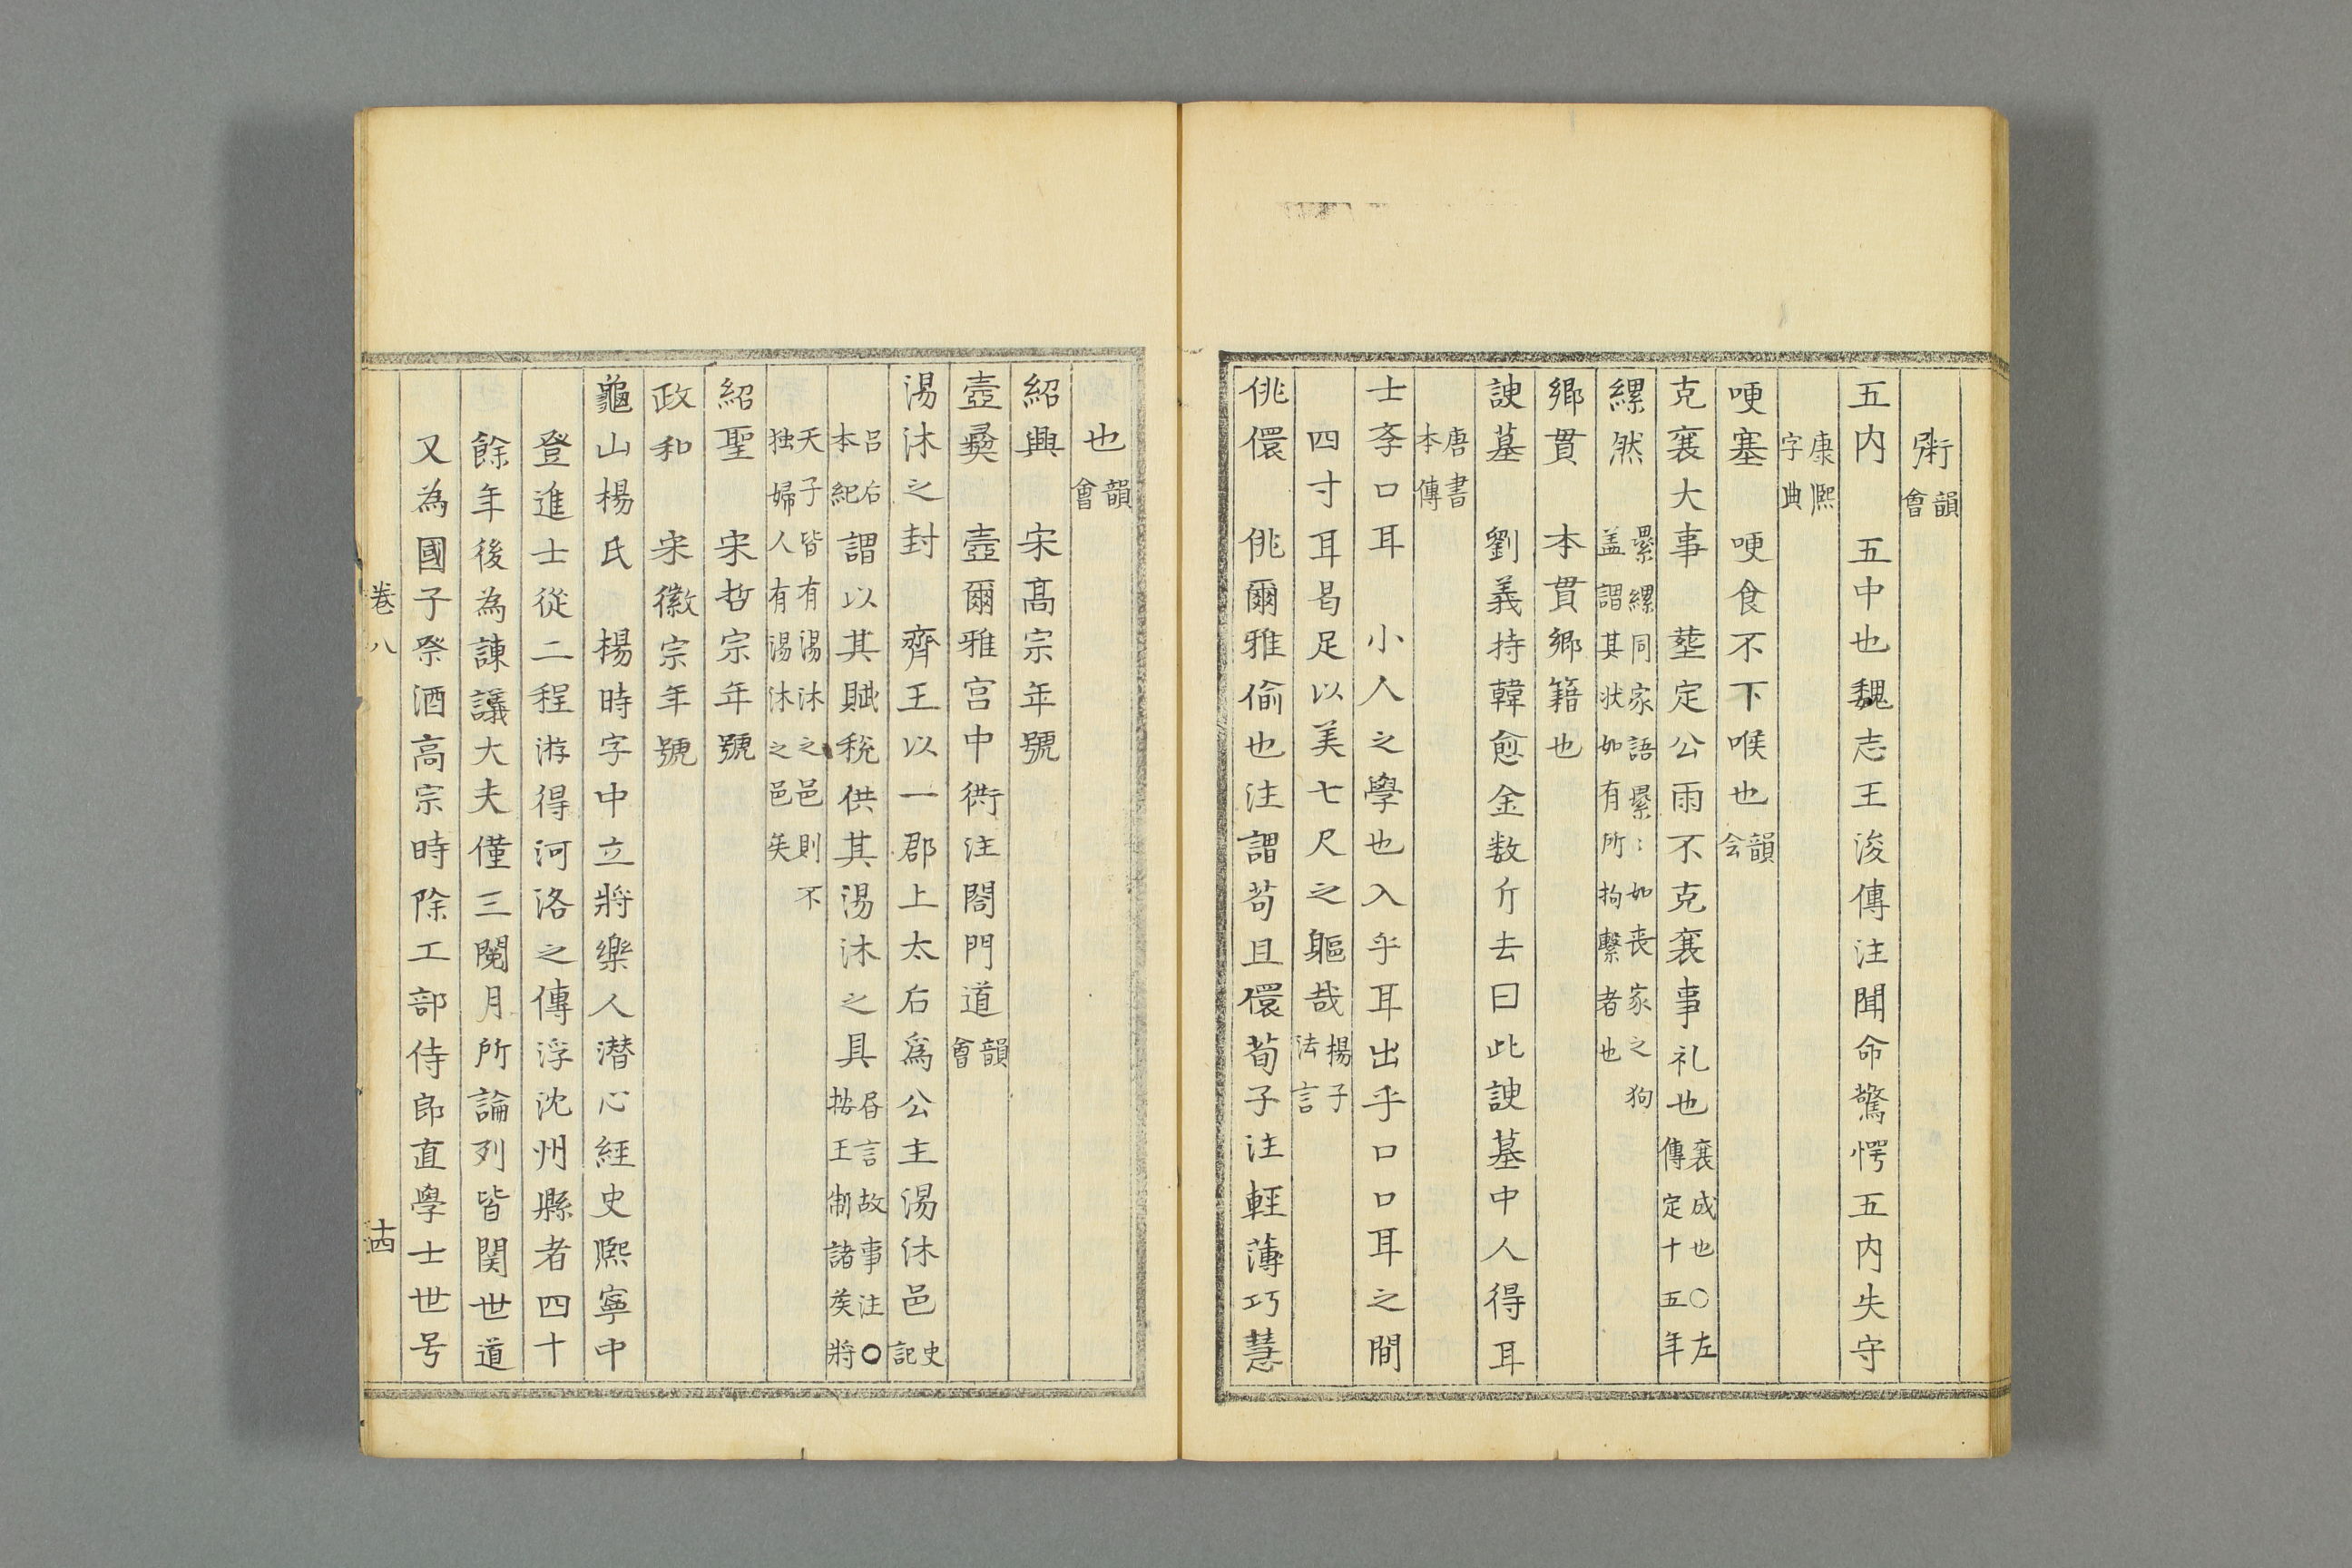 術韻會
五内 五中也魏志王浚傳注聞命驚愕五内失守
康熙字典
哽塞 哽食不下喉也韻会
克襄大事 塟定公雨不克襄事礼也襄成也○左傳定十五年
縲然 纍縲同家語纍〻如丧家之狗盖謂其状如有所拘繫者也
鄉貫 本貫鄉籍也
諛墓 劉義持韓愈金数斤去曰此諛墓中人得耳
唐書本傳
士斈口耳 小人之學也入乎耳出乎口口耳之間
四寸耳曷足以美七尺之軀哉揚子法言
佻儇 佻爾雅偷也注謂苟且儇荀子注輕薄巧慧
也韻會
紹興 宋髙宗年號
壼彜 壼爾雅宫中衖注閤門道韻會
湯沐之封 齊王以一郡上太后爲公主湯沐邑史記
吕后本紀謂以其賦税供其湯沐之具昏言故事注○按王制諸矦將
天子皆有湯沐之邑則不独婦人有湯沐之邑矣
紹聖 宋哲宗年號
政和 宋徽宗年號
龜山楊氏 楊時字中立將樂人潜心經史熙寧中
登進士從二程游得河洛之傳浮沈州縣者四十
餘年後為諫議大夫僅三閱月所論列皆関世道
又為國子祭酒高宗時除工部侍郎直學士世号
卷八 十四